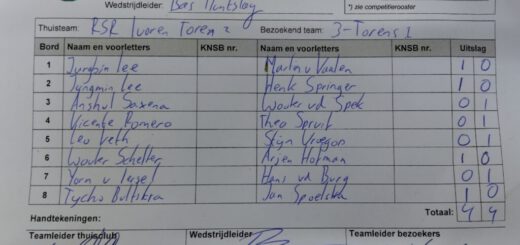 Wedstrijdleider: Bas Huntslag *) zie competitierooster
Thuisteam: RSR Ivoren Toren 2 Bezoekend team: 3-Torens 1
Bord Naam en voorletters KNSB nr. Naam en voorletters KNSB nr. Uitslag
1 Junghin Lee Martin v Vaalen 1 0
2 Jungmin Lee Henk Springer 1 0
3 Anshul Saxena Wouter vd Spek 0 1
4 Vicente Romero Theo Spruit 0 1
5 Leo Verh Stijn Vroegop 0 1
6 Wouter Schelter Arjen Hofman 1 0
7 Yorn v Iersel Hans vd Burg 0 1
8 Tycho Bultstra Jan Spoelstra 1 0
Totaal: 4 4
Handtekeningen:
Teamleider thuisclub Wedstrijdleider Teamleider bezoekers